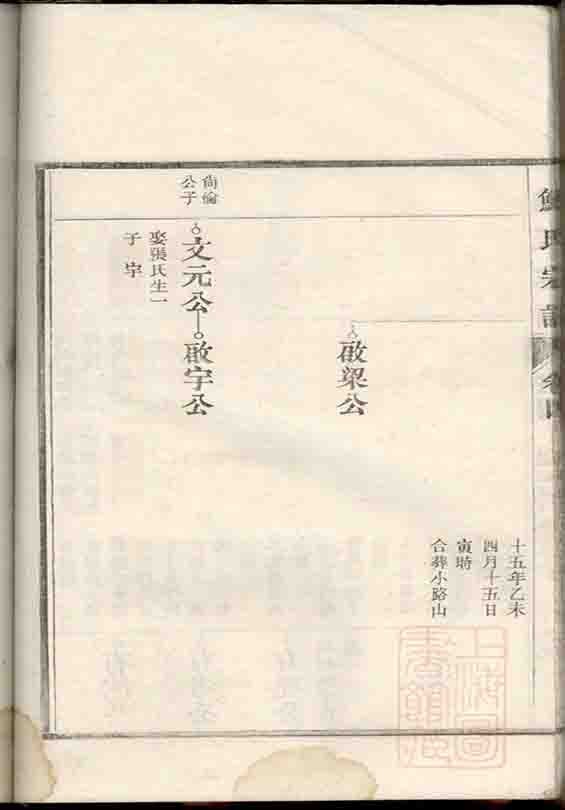 氏宗譜
卷四
十五年乙未
四月十五日
寅時
合葬小路山
啟梁公
尙倫
公子
文元公
啟宇公
娶張氏生一
子宇
上海圖
書館藏